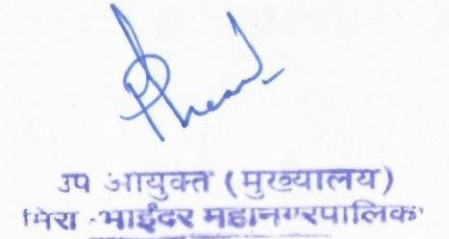 उप आयुक्त (मुख्यालय)
मिरा -भाईंदर महानगरपालिका